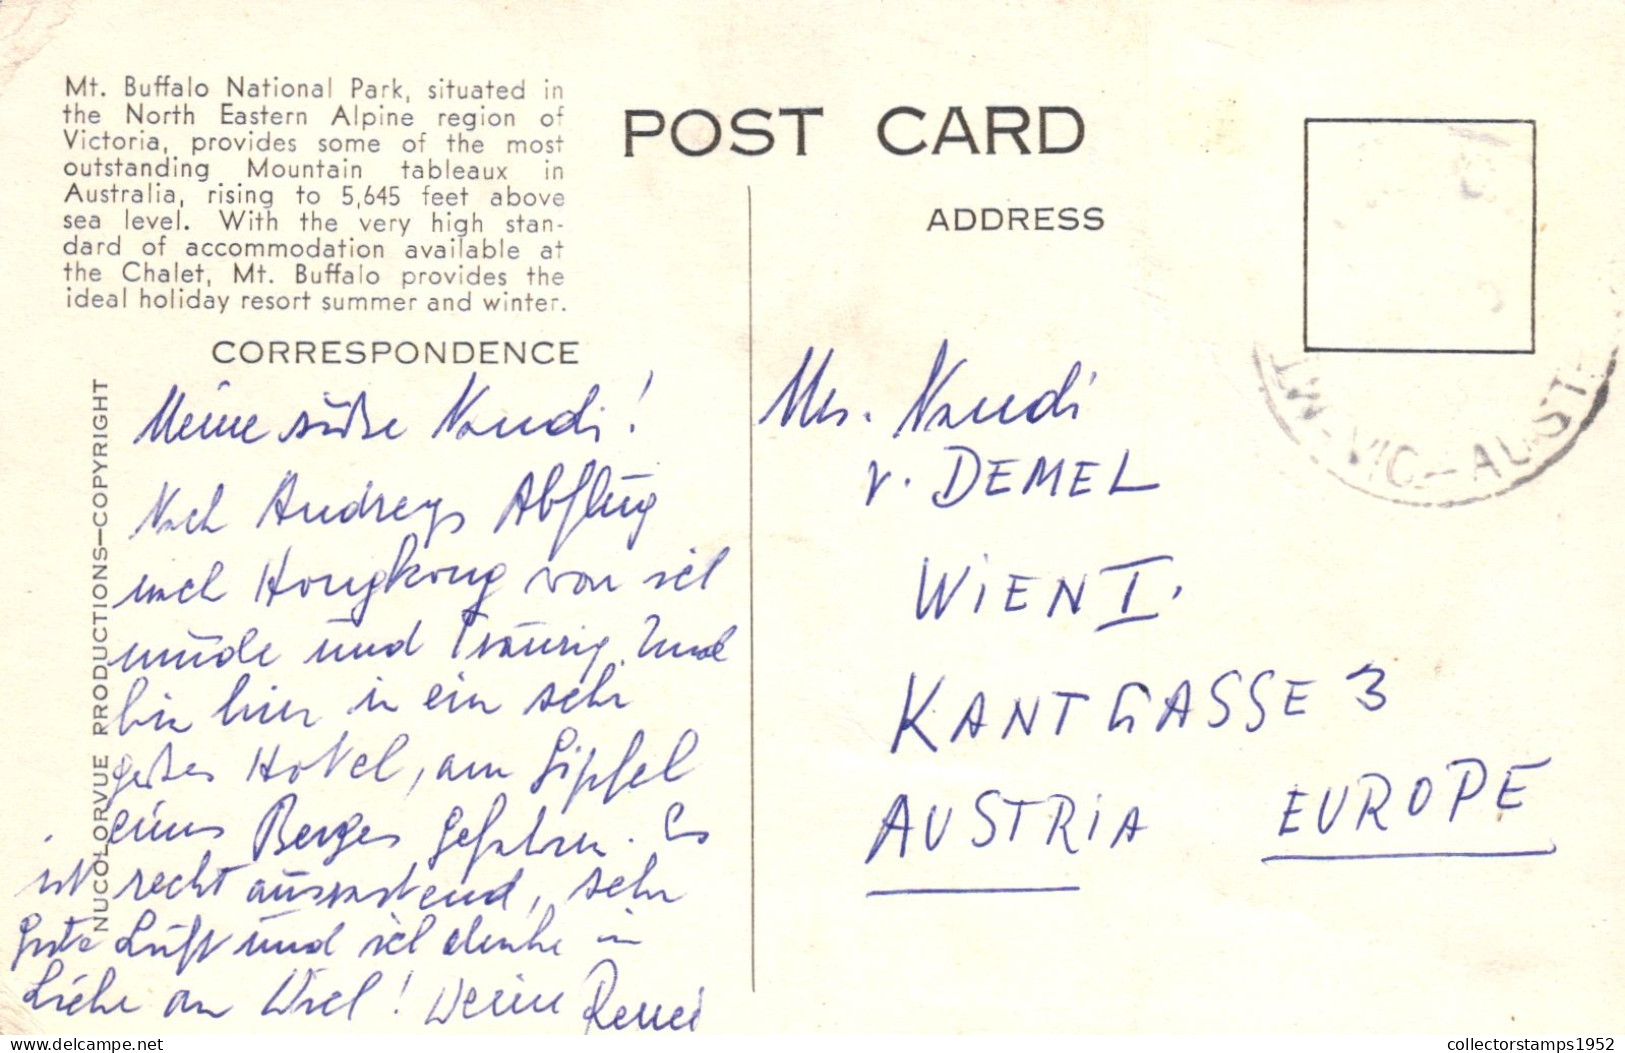 Mt. Buffalo National Park, situated in
the North Eastern Alpine region of
Victoria, provides some of the most
outstanding Mountain tableaux in
Australia, rising to 5,645 feet above
sea level. With the very high stan-
dard of accommodation available at
the Chalet, Mt. Buffalo provides the
ideal holiday resort summer and winter.
CORRESPONDENCE
NUCOLORVUE PRODUCTIONS—COPYRIGHT
Meine süße Nandi!
Nach Audreys Abflug
nach Hongkong war ich
müde und traurig. Und
bin hier in ein sehr
gutes Hotel, am Gipfel
eines Berges gefahren. Es
ist recht, sehr
gute Luft und ich denke in
Liebe an! Deine
POST CARD
ADDRESS
Mrs. Nandi
v. DEMEL
WIEN I.
KANTGASSE 3
AUSTRIA EUROPE
MT-VIC-AUST-
collectorstamps1952
Delcampe.net